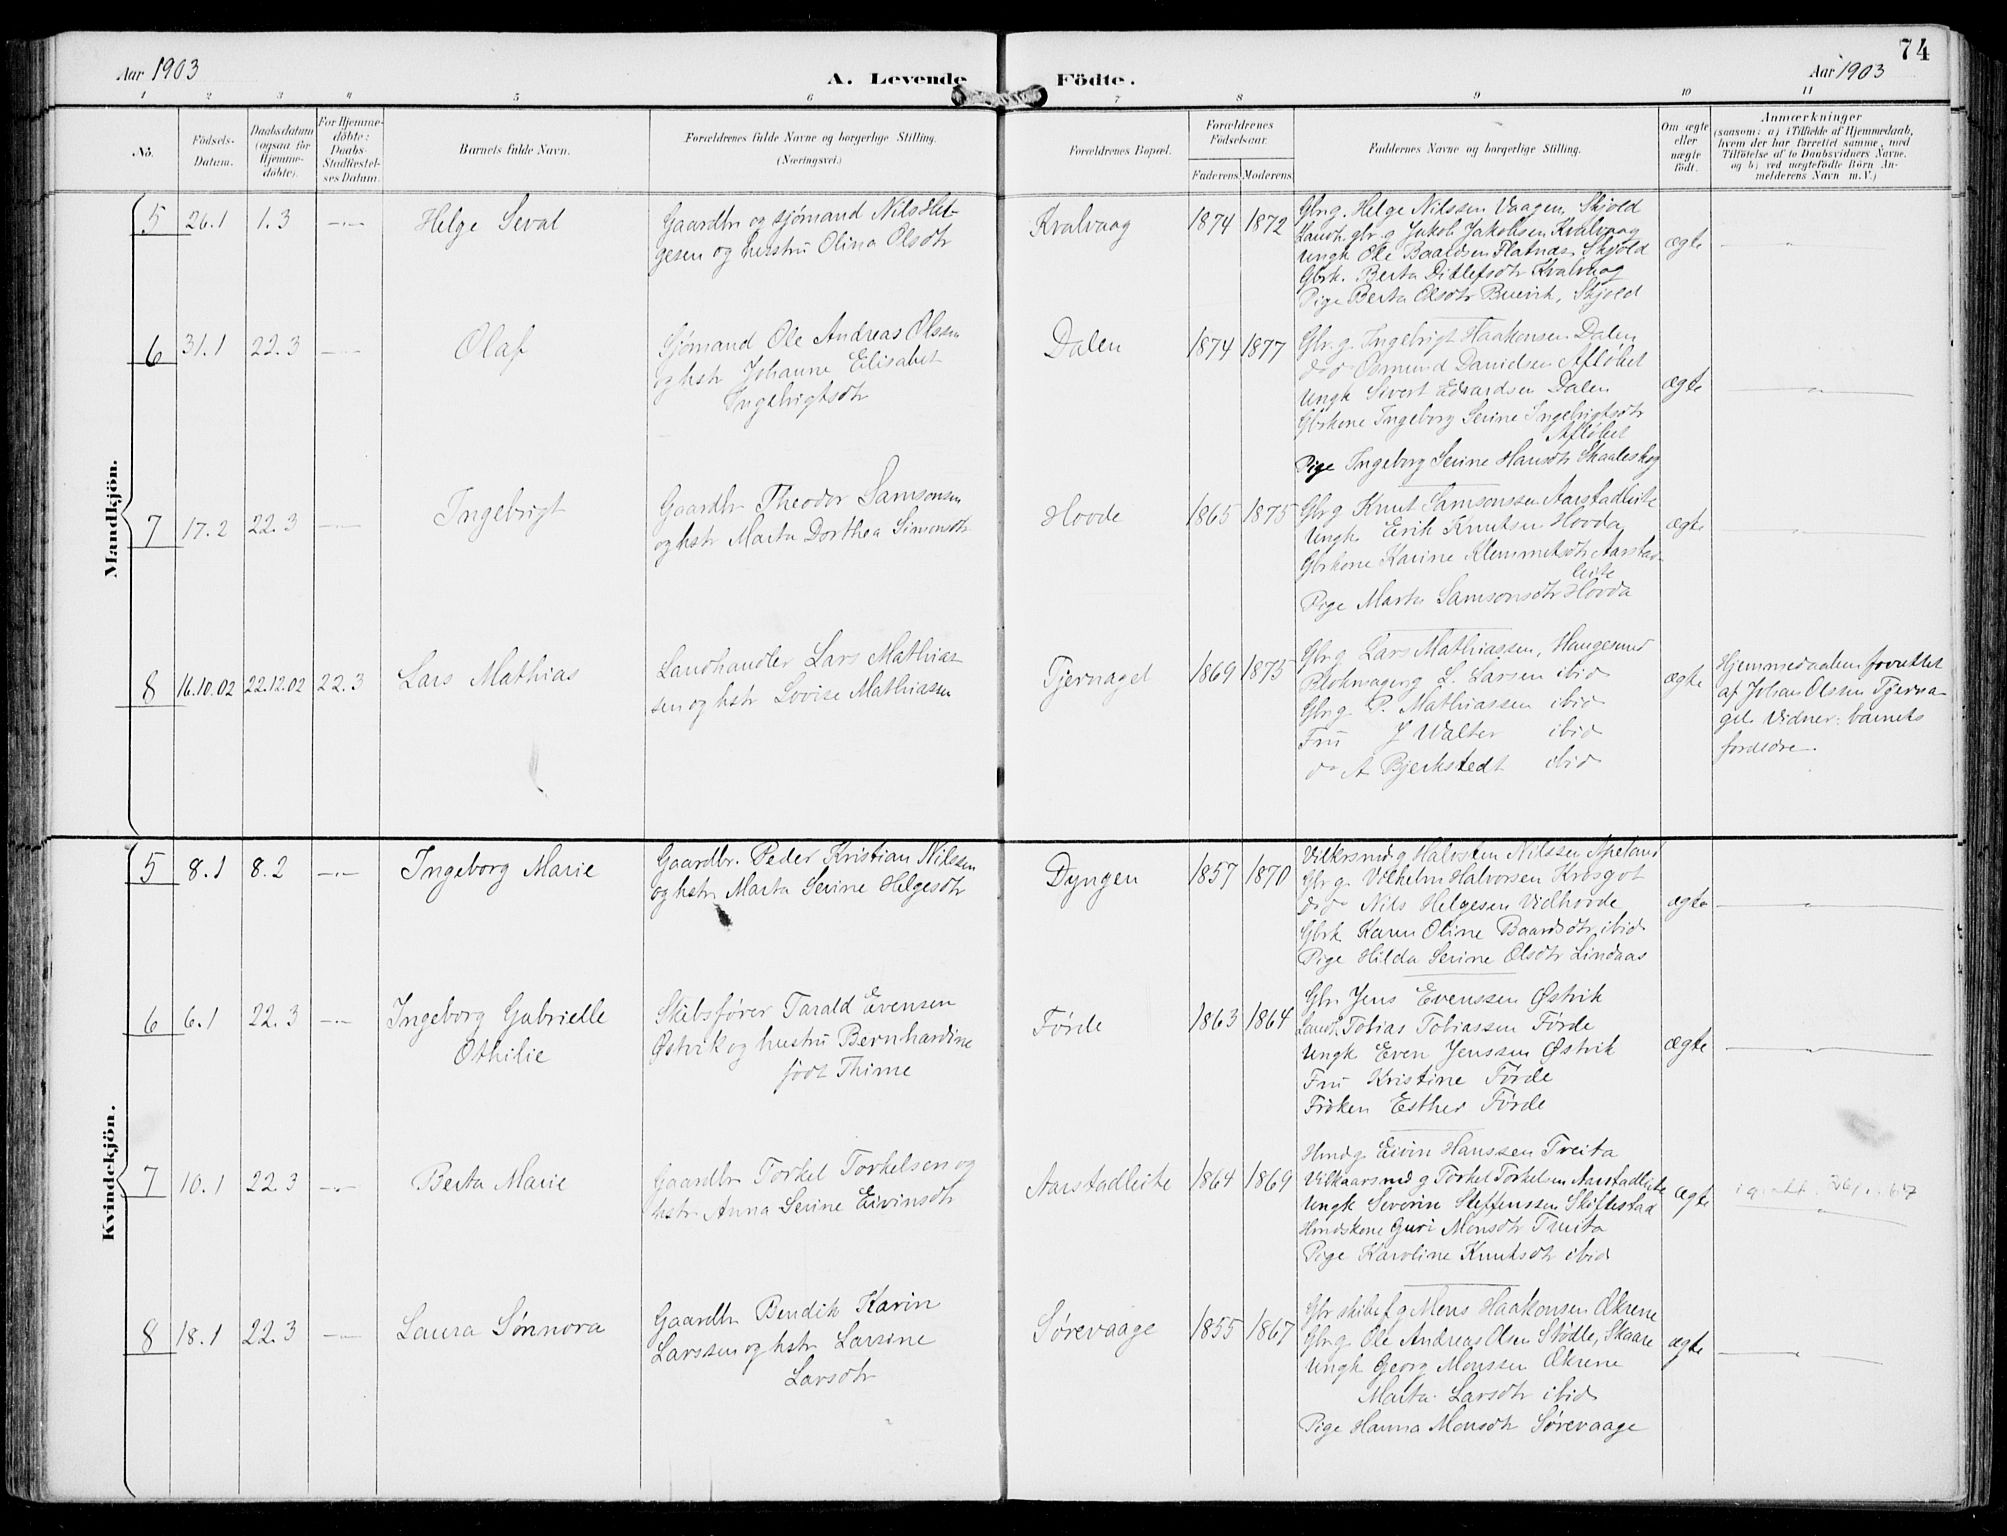 74
Aar 1903
A. Levende Födte.
Aar 1903
1 2 3 4 5 6 7 8 9 10 11
No.
Födsels-
Datum.
Daabsdatum
(ogsaa for
Hjemme-
döbte).
For Hjemme-
döbte:
Daabs-
Stadfæstel-
ses Datum.
Barnets fulde Navn.
Forældrenes fulde Navne og borgerlige Stilling.
(Næringsvei.)
Forældrenes Bopæl.
Forældrenes
Födselsaar.
Faderens. Moderens.
Faddernes Navne og borgerlige Stilling.
Om ægte
eller
uægte
födt.
Anmærkninger
(saasom: a) i Tilfælde af Hjemmedaab,
hvem der har forrettet samme, med
Tilföielse af to Daabsvidners Navne,
og b) ved uægtefödte Börn An-
melderens Navn m. V.)
Mandkjön.
5 26.1 1.3 —"—
Helge Seval
Gaardbr og sjømand Nils Hel-
gesen og hustru Olina Olsdtr
Kvalvaag
1874 1872
Gbrg. Helge Nilssen Vaagen, Skjold
Landh. gbr. g Jakob Jakobsen Kvalvaag
Ungk Ole Baardsen Flatnæs Skjold
Gbrk. Berta Ditlefsdtr Kvalvaag
Pige Berta Olsdtr Buevik, Skjold
ægte
6 31.1 22.3 —"—
Olaf
Sjømand Ole Andreas Olsen
og hstr Johanne Elisabet
Ingebrigtsdtr
Dalen
1874 1877
Gbr. g. Ingebrigt Haakonsen Dalen
do do Osmund Danielsen Afløbet
Ungk Sivert Edvardsen Dalen
Gbrkone Ingeborg Serine Ingebrigtsdtr
Afløbet
Pige Ingeborg Serine Hansdtr Skaaleskog
ægte
7 17.2 22.3 —"—
Ingebrigt
Gaardbr Theodor Samsonsen
og hstr Marta Dorthea Simonsdtr
Hovde
1865 1875
Gbrg Knut Samsonssen Aarstadleite
Ungk Erik Knutsen Hovda
Gbrkone Karine Klemmetsdtr Aarstad-
leite
Pige Marta Samsonsdtr Hovda
ægte
8 16.10.02 22.12.02 22.3
Lars Mathias
Landhandler Lars Mathias-
sen og hstr Lovise Mathiassen
Tjernagel
1869 1875
Gbrg Lars Mathiassen, Haugesund
Blokmagerg L. Larsen ibid
Gbrg P. Mathiassen ibid
Fru J Walter ibid
do A Bjerkstedt ibid
ægte
Hjemmedaaben forrettet
af Johan Olssen Tjerna-
gel. Vidner: barnets
forældre.
Kvindekjön.
5 8.1 8.2 —"—
Ingeborg Marie
Gaardbr. Peder Kristian Nilssen
og hstr Marta Serine Helgesdtr
Dyngen
1857 1870
Vilkrsmd g Halvsten Nilssen Apeland
Gbr g. Vilhelm Halvorsen
do do Nils Helgesen Vidhovde
Gbrk Karen Oline Baardsdtr ibid
Pige Hilda Serine Olsdtr Lindaas
ægte
6 6.1 22.3 —"—
Ingeborg Gabrielle
Othilie
Skibsfører Tarald Evensen
Østvik og hustru Bernhardine
født Thime
Førde
1863 1864
Gbr Jens Evenssen Østvik
Landh. Tobias Tobiassen Førde
Ungk Even Jenssen Østvik
Fru Kristine Førde
Frøken Esther Førde
ægte
7 10.1 22.3 —"—
Berta Marie
Gaardbr Torkel Torkelsen og
hstr Anna Serine Eivinsdtr
Aarstadleite
1864 1869
Hmdg Eivin Hanssen Treita
Vilkaarsmd g Torkel Torkelsen Aarstadleite
Ungk Severin Steffenssen Skiftestad
Hmdskone Guri Monsdtr Treita
Pige Karoline Knutsdtr ibid
ægte
8 18.1 22.3 —"—
Laura Sønnora
Gaardbr Bendik Karin
Larssen og hstr Larsine
Larsdtr
Sørevaage
1855 1867
Gbr skibsf g Mons Haakonsen Økrene
Gbrg. Ole Andreas Olsen Stødle, Skaare
Ungk Georg Monssen Økrene
Marta Larsdtr ibid
Pige Hanna Monsdtr Sørevaage
ægte